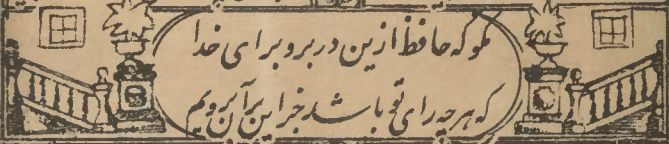 مگو که حافظ ازین در برو برای خدا
که هرچه رای تو باشد جز این بر آن برویم